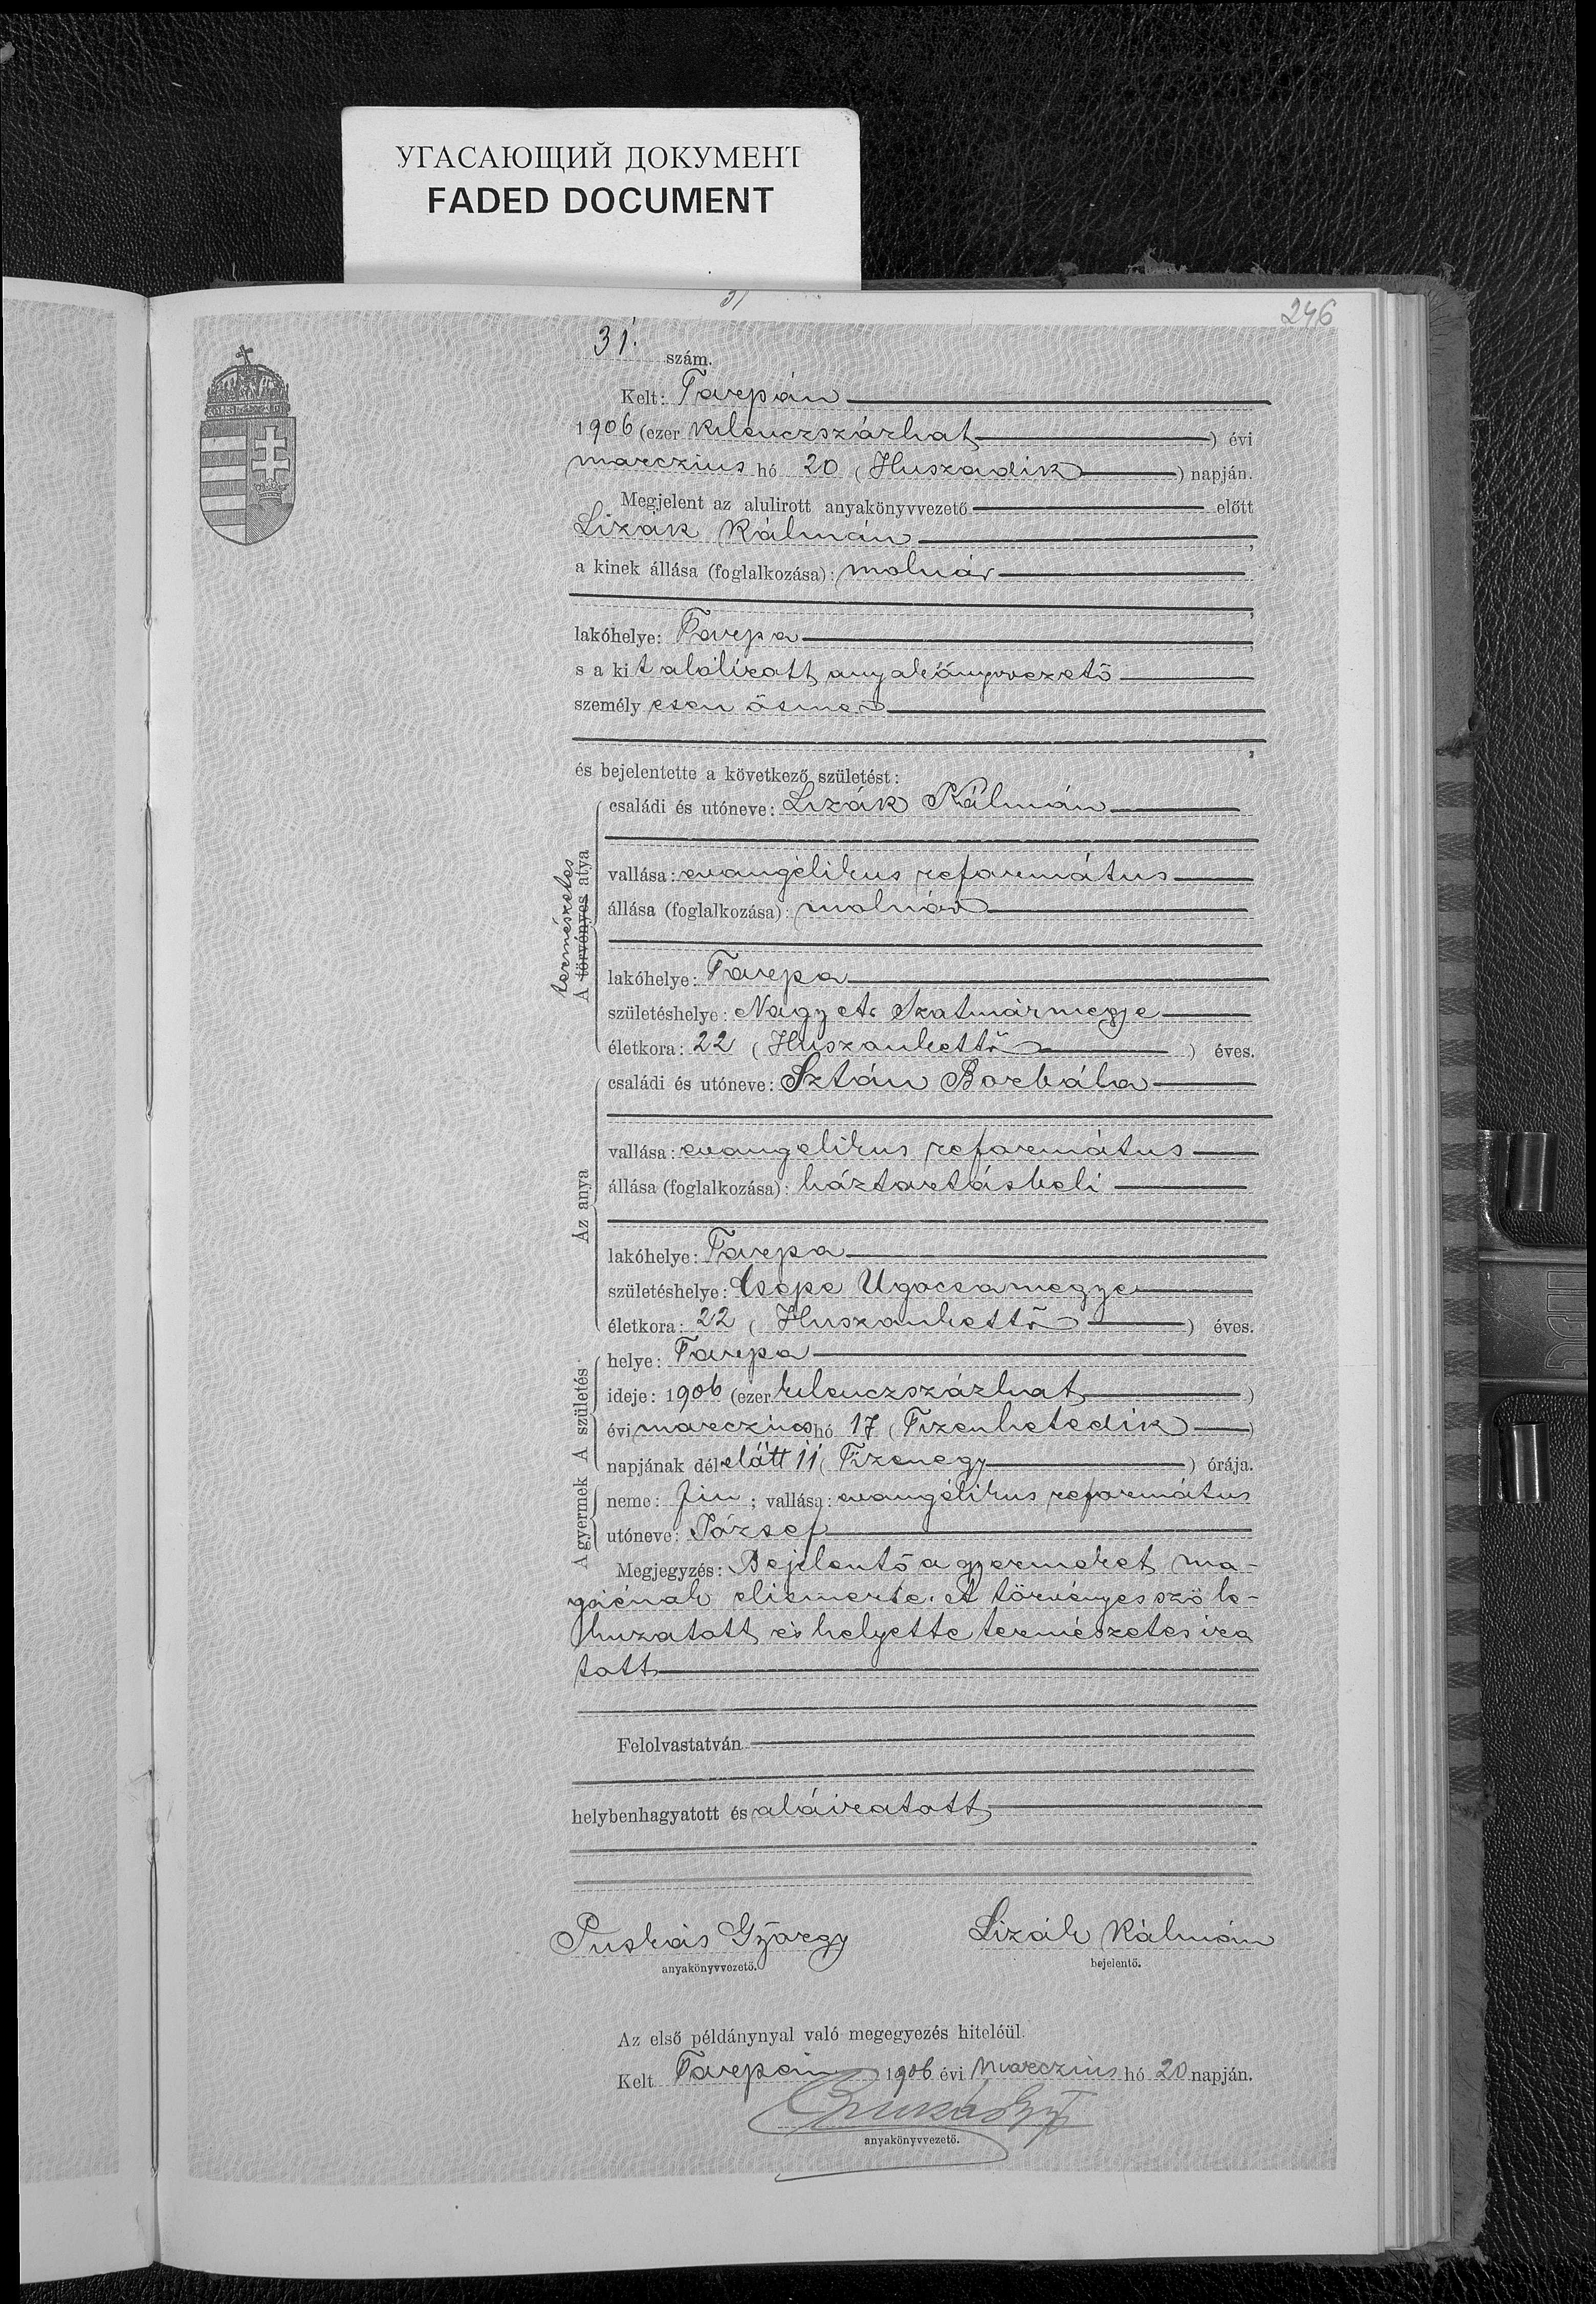 УГАСАЮЩИЙ ДОКУМЕНТ
FADED DOCUMENT
31
246
31. szám.
Kelt: Tarepán
1906 (ezer kilenczszázhat) évi
márczius hó 20 (Huszadik) napján.
Megjelent az alulirott anyakönyvvezető előtt
Lizák Kálmán,
a kinek állása (foglalkozása): molnár
,
lakóhelye: Tarepa,
s a kit alólírott anyakönyvvezető
személyesen ösmer
,
és bejelentette a következő születést:
A törvényes atya
természetes
családi és utóneve: Lizák Kálmán
vallása: evangélikus református
állása (foglalkozása): molnár
lakóhelye: Tarepa
születéshelye: Nagy A. Szatmármegye
életkora: 22 (Huszonkettő) éves.
Az anya
családi és utóneve: Sztán Borbála
vallása: evangelikus református
állása (foglalkozása): háztartásbeli
lakóhelye: Tarepa
születéshelye: Csepe Ugocsamegye
életkora: 22 (Huszonkettő) éves.
A születés
helye: Tarepa
ideje: 1906 (ezer kilenczszázhat)
évi márczius hó 17 (Tizenhetedik)
napjának délelőtt 11 (Tizenegy) órája.
A gyermek
neme: fiu; vallása: evangélikus református
utóneve: József
Megjegyzés: Bejelentő a gyermeket ma-
gáénak elismerte. A törvényes szó le-
huzatott és helyette természetes ira
tott
Felolvastatván
helybenhagyatott és aláiratott
Puskás György Lizák Kálmán
anyakönyvvezető. bejelentő.
Az első példánynyal való megegyezés hiteléül.
Kelt Tarepán 1906 évi márczius hó 20 napján.
anyakönyvvezető.